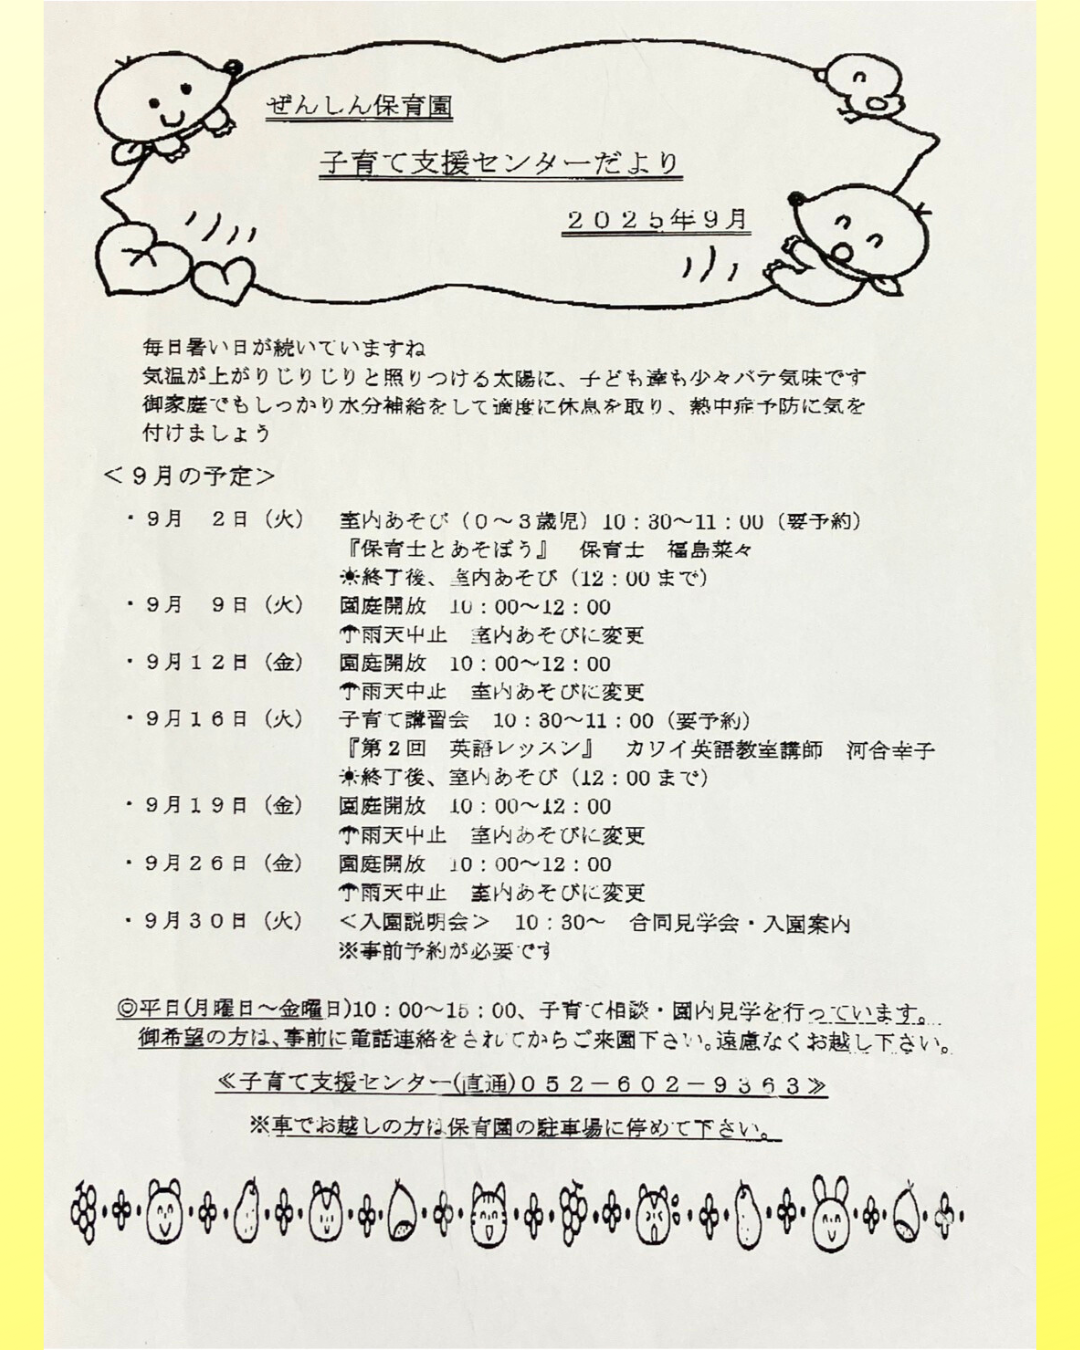 ぜんしん保育園
子育て支援センターだより
２０２５年９月
毎日暑い日が続いていますね
気温が上がりじりじりと照りつける太陽に、子ども達も少々バテ気味です
御家庭でもしっかり水分補給をして適度に休息を取り、熱中症予防に気を
付けましょう
＜９月の予定＞
・９月　２日（火）　室内あそび（０～３歳児）10：30～11：00（要予約）
『保育士とあそぼう』　保育士　福島菜々
☀終了後、室内あそび（12：00まで）
・９月　９日（火）　園庭開放　10：00～12：00
☂雨天中止　室内あそびに変更
・９月１２日（金）　園庭開放　10：00～12：00
☂雨天中止　室内あそびに変更
・９月１６日（火）　子育て講習会　10：30～11：00（要予約）
『第２回　英語レッスン』　カワイ英語教室講師　河合幸子
☀終了後、室内あそび（12：00まで）
・９月１９日（金）　園庭開放　10：00～12：00
☂雨天中止　室内あそびに変更
・９月２６日（金）　園庭開放　10：00～12：00
☂雨天中止　室内あそびに変更
・９月３０日（火）　＜入園説明会＞　10：30～　合同見学会・入園案内
※事前予約が必要です
◎平日(月曜日～金曜日)10：00～15：00、子育て相談・園内見学を行っています。
御希望の方は、事前に電話連絡をされてからご来園下さい。遠慮なくお越し下さい。
≪子育て支援センター(直通)０５２－６０２－９３６３≫
※車でお越しの方は保育園の駐車場に停めて下さい。